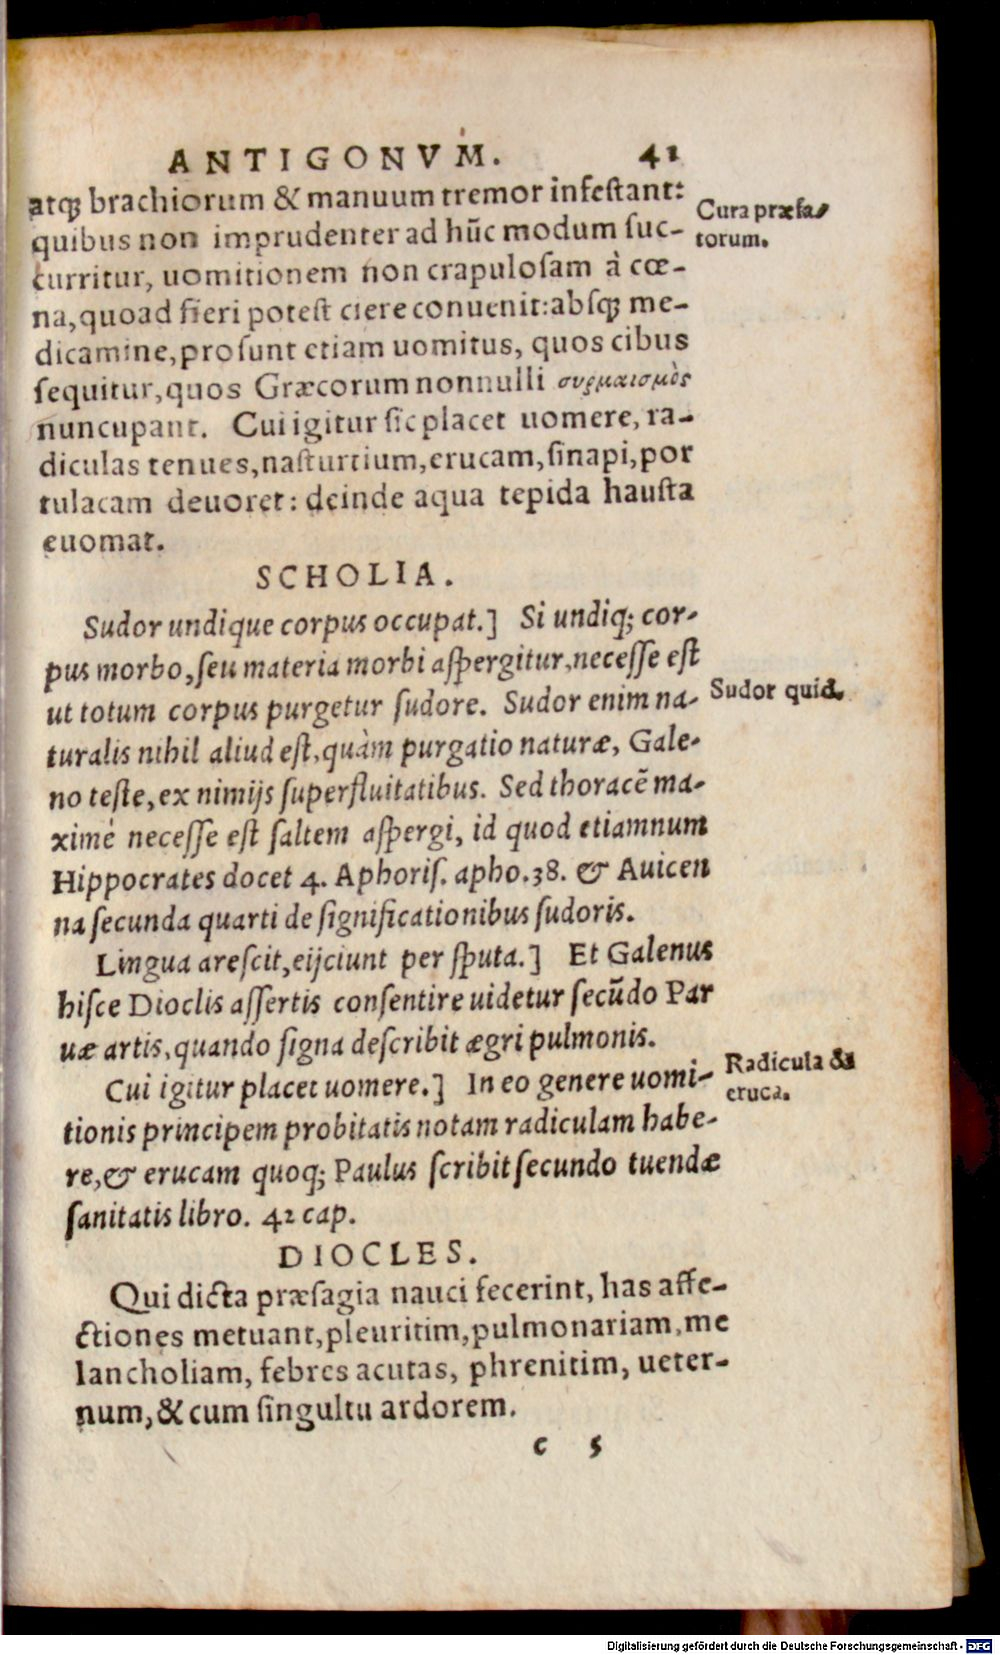 ANTIGONVM. 41
atq; brachiorum & manuum tremor infestant:
Cura præfa-
quibus non imprudenter ad hũc modum suc-
torum.
curritur, uomitionem non crapulosam à cœ-
na, quoad fieri potest ciere conuenit: absq; me-
dicamine, prosunt etiam uomitus, quos cibus
sequitur, quos Græcorum nonnulli συρμαισμὸς
nuncupant. Cui igitur sic placet uomere, ra-
diculas tenues, nasturtium, erucam, sinapi, por
tulacam deuoret: deinde aqua tepida hausta
euomat.
SCHOLIA.
Sudor undique corpus occupat.] Si undiq; cor-
pus morbo, seu materia morbi aspergitur, necesse est
ut totum corpus purgetur sudore. Sudor enim na-
Sudor quid.
turalis nihil aliud est, quàm purgatio naturæ, Gale-
no teste, ex nimijs superfluitatibus. Sed thoracẽ ma-
ximè necesse est saltem aspergi, id quod etiamnum
Hippocrates docet 4. Aphoris. apho. 38. & Auicen
na secunda quarti de significationibus sudoris.
Lingua arescit, eijciunt per sputa.] Et Galenus
hisce Dioclis assertis consentire uidetur secũdo Par
uæ artis, quando signa describit ægri pulmonis.
Cui igitur placet uomere.] In eo genere uomi-
Radicula &
eruca.
tionis principem probitatis notam radiculam habe-
re, & erucam quoq; Paulus scribit secundo tuendæ
sanitatis libro. 42 cap.
DIOCLES.
Qui dicta præsagia nauci fecerint, has affe-
ctiones metuant, pleuritim, pulmonariam, me
lancholiam, febres acutas, phrenitim, ueter-
num, & cum singultu ardorem.
c 5
Digitalisierung gefördert durch die Deutsche Forschungsgemeinschaft - DFG